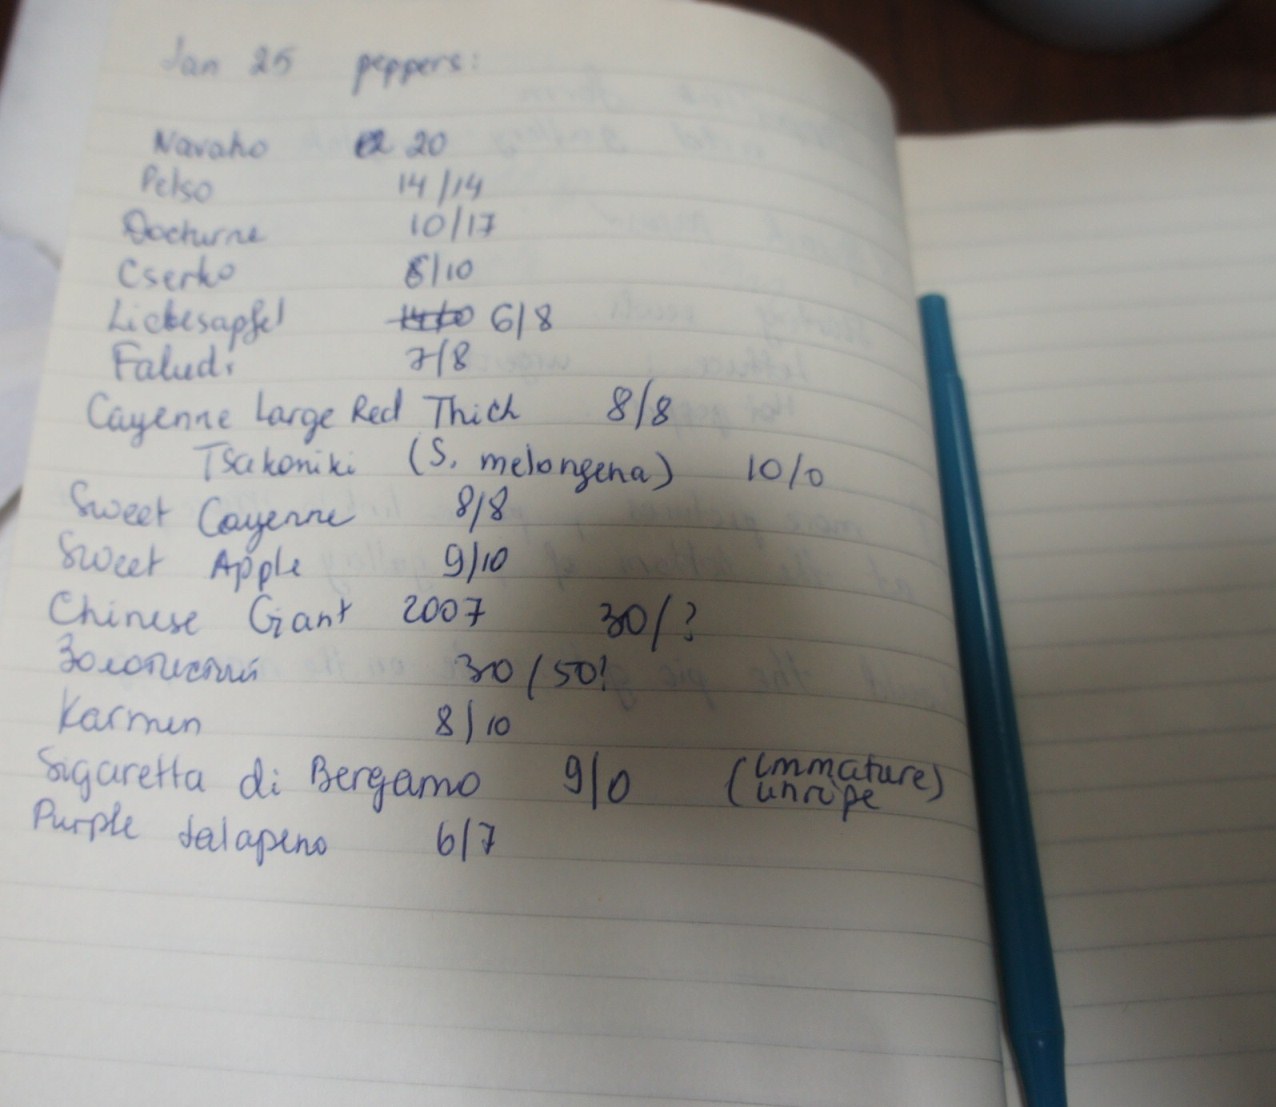 Jan 25 peppers:
Navaho 20
Pelso 14/14
Docturne 10/17
Cserko 8/10
Liebesapfel 6/8
Faludi 7/8
Cayenne Large Red Thick 8/8
Tsakoniki (S. melongena) 10/0
Sweet Cayenne 8/8
Sweet Apple 9/10
Chinese Giant 2007 30/?
Золотистый 30/50!
Karmen 8/10
Sigaretta di Bergamo 9/0 (immature)
unripe
Purple Jalapeno 6/7